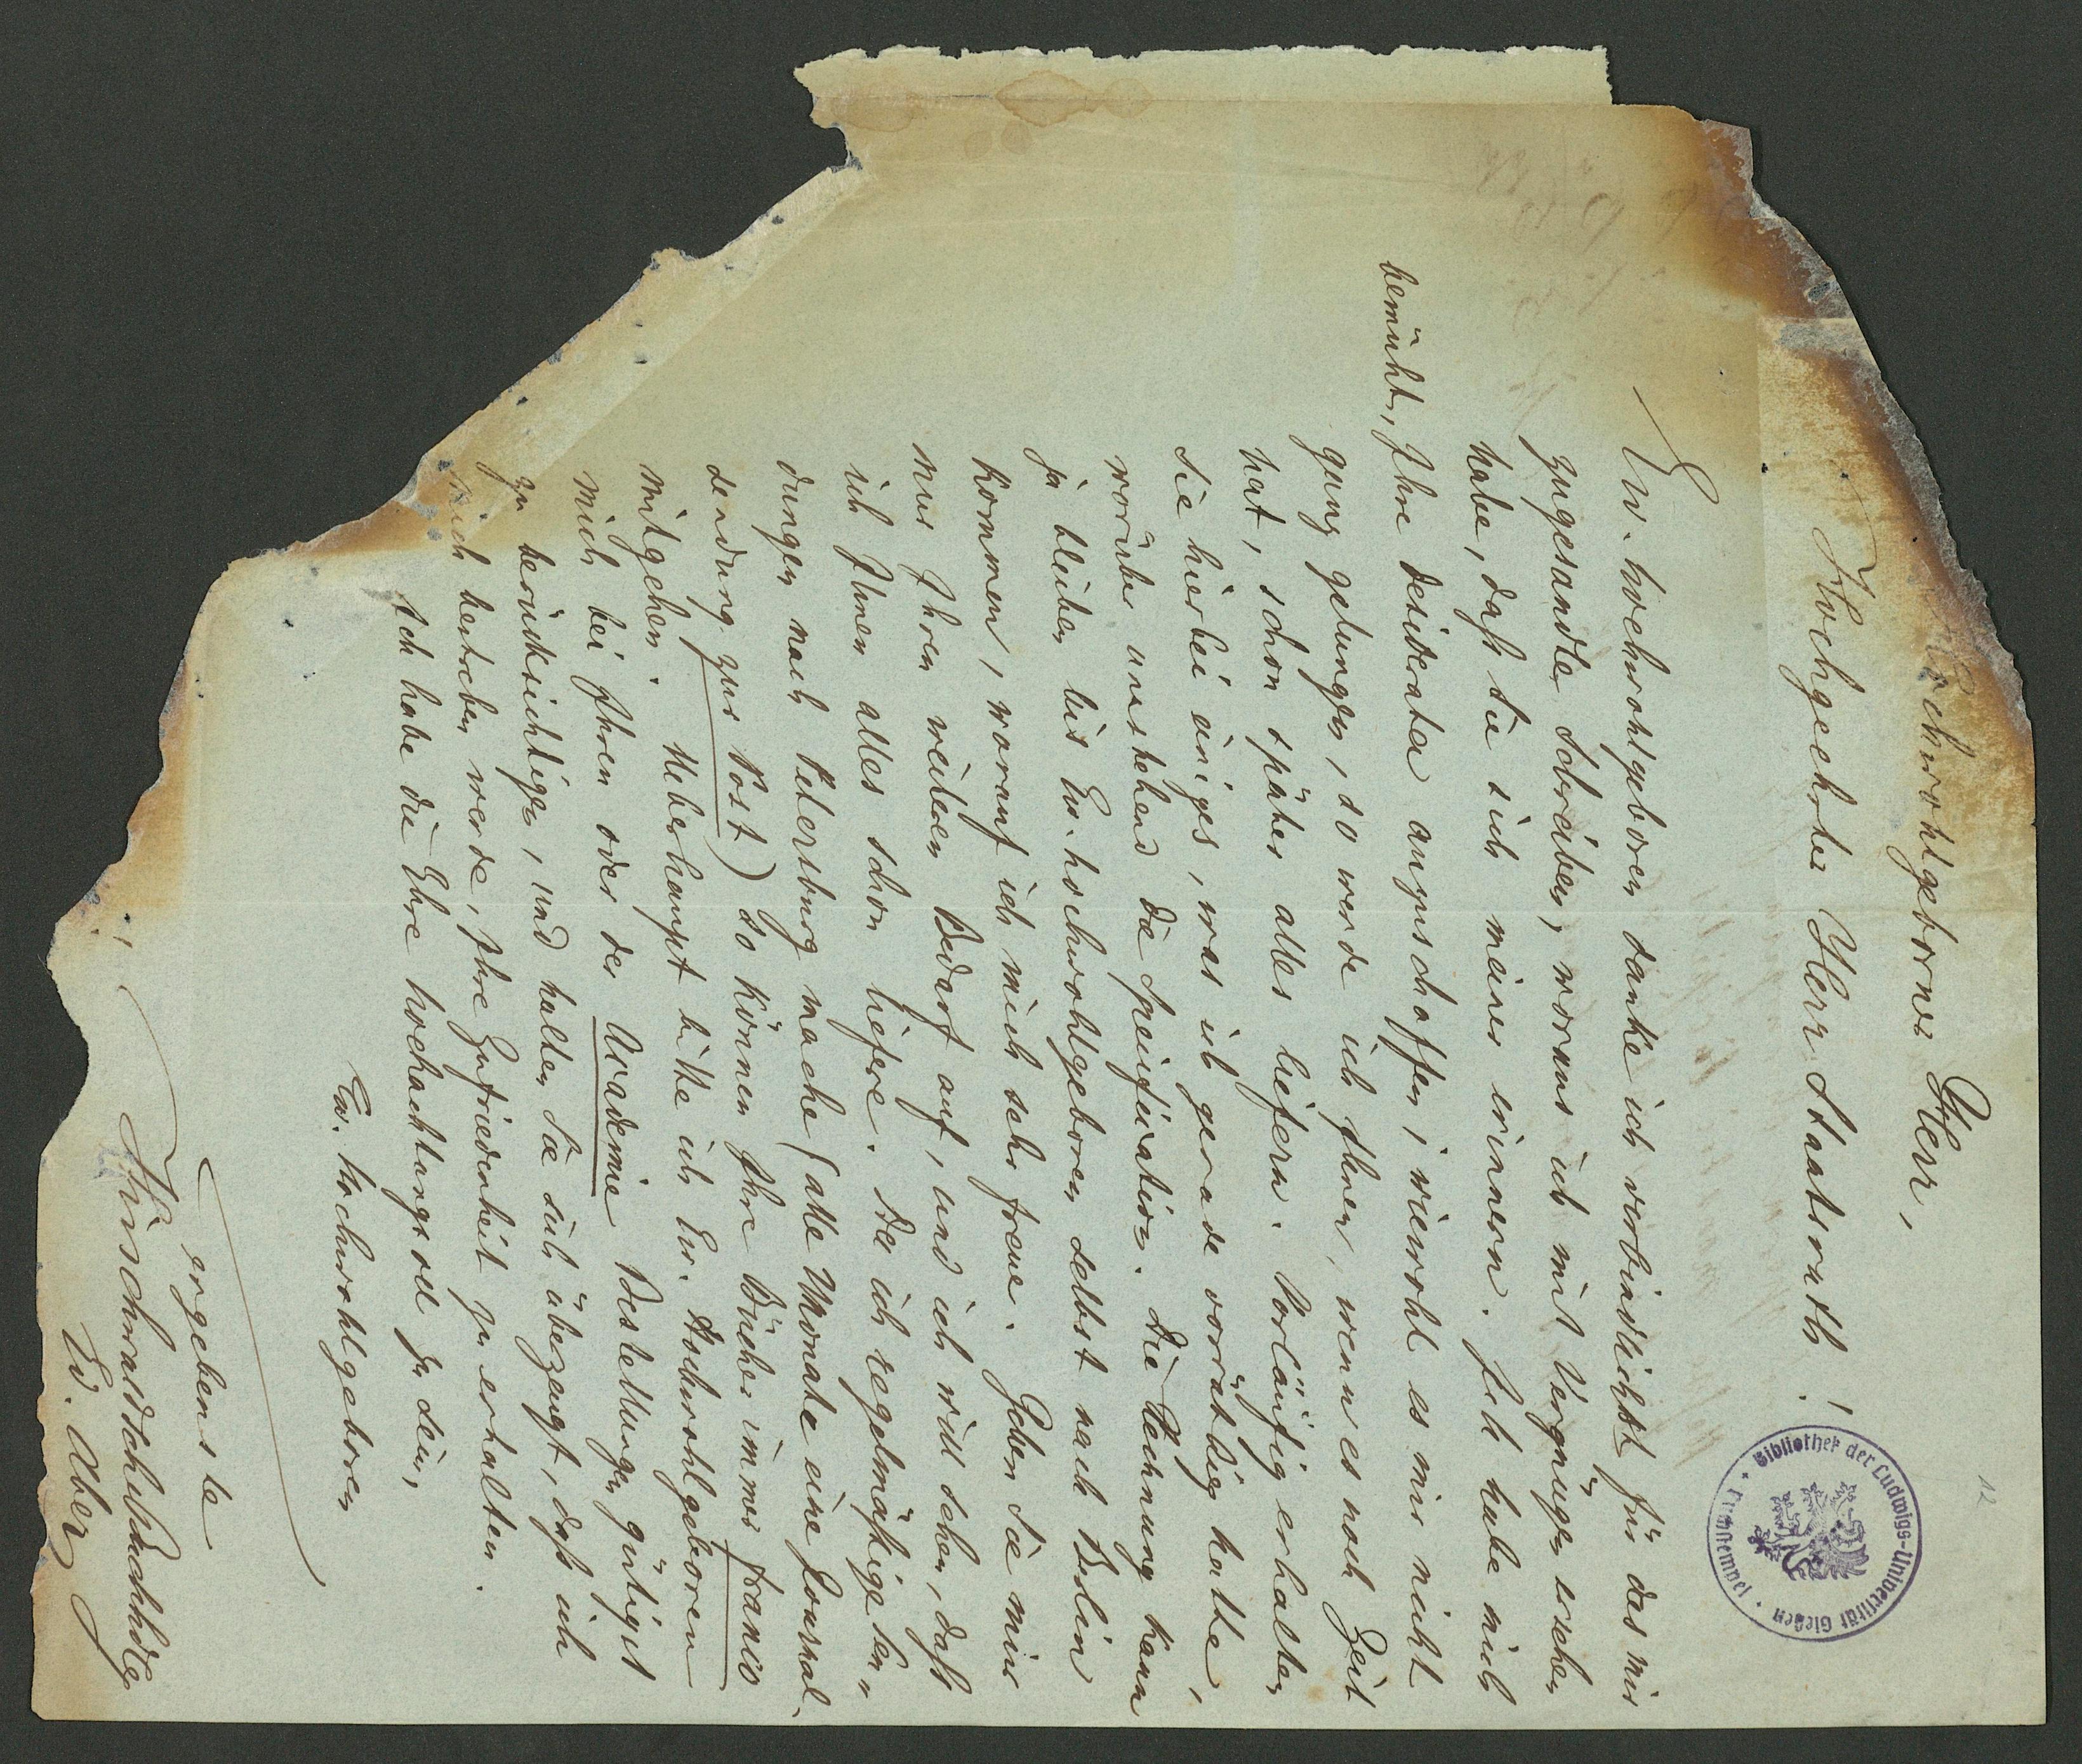 Hochwohlgeborner Herr,
Hochgeehrter Herr Staatsrath!
Ew. hochwohlgeboren danke ich verbindlichst für das mir
zugesandte Schreiben, woraus ich mit Vergnügen ersehen
habe, daß Sie sich meiner erinnern. Ich habe mich
bemüht, Ihre desiderata anzuschaffen; wiewohl es mir nicht
ganz gelungen, so werde ich Ihnen, wenn es noch Zeit
hat, schon später alles liefern. Vorläufig erhalten
Sie hierbei einiges, was ich gerade vorräthig hatte,
worüber umstehend die Specification. Die Rechnung kann
ja bleiben bis Ew. hochwohlgeboren selbst nach Berlin
kommen, worauf ich mich sehr freue. Geben Sie mir
nur Ihren weiteren Bedarf auf, und ich will sehen, daß
ich Ihnen alles schon liefere. Da ich regelmäßige Sen-
dungen nach Petersburg mache (alle Monate eine Journal-
sendung zur Post) so können Ihre Bücher immer franco
mitgehen. Ueberhaupt bitte ich Ew. Hochwohlgeboren
mich bei Ihren oder der Academie Bestellungen gütigst
zu berücksichtigen, und halten Sie sich überzeugt, daß ich
mich bestreben werde, Ihre Zufriedenheit zu erhalten.
Ich habe die Ehre hochachtungsvoll zu sein,
Ew. Hochwohlgeboren
ergebenste
Hirschwaldsche Buchhdlg
Ed. Aber
12
Bibliothek der Ludwigs-Universität Gießen